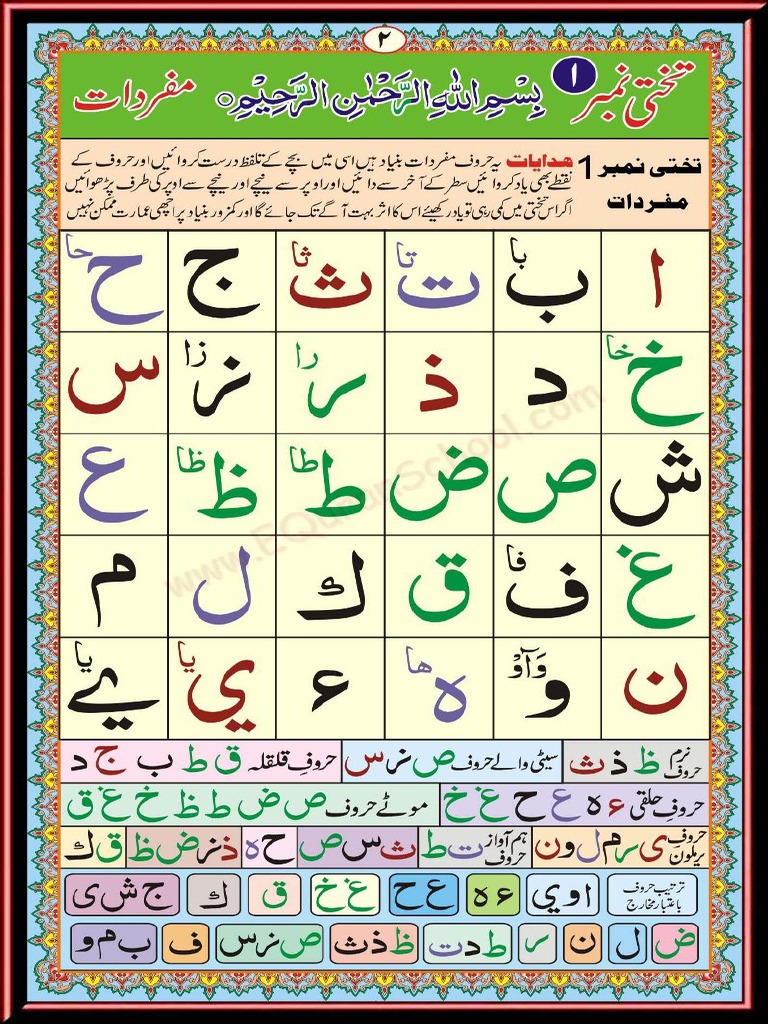 ۲
تختی نمبر ۱ بِسْمِ اللهِ الرَّحْمٰنِ الرَّحِيْمِ ○ مفردات
تختی نمبر 1 مفردات
ھدایات یہ حروف مفردات بنیاد ہیں اسی میں بچے کے تلفظ درست کروائیں اور حروف کے
نقطے بھی یاد کروائیں سطر کے آخر سے دائیں اور اوپر سے نیچے اور نیچے سے اوپر کی طرف پڑھوائیں
اگر اس تختی میں کمی رہی تو یاد رکھیئے اس کا اثر بہت آگے تک جائے گا اور کمزور بنیاد پر اچھی عمارت ممکن نہیں
ا ب با ت تا ث ثا ج ح حا
خ خا د ذ ر را ز زا س
ش ص ض ط طا ظ ظا ع
غ ف فا ق ك ل م
ن و وَآوْ ہ ھا ء ي يا ے یا
نرم حروف ظ ذ ث سیٹی والے حروف ص ز س حروفِ قلقلہ ق ط ب ج د
حروفِ حلقی ء ہ ع ح غ خ موٹے حروف ص ض ط ظ خ غ ق
حروفِ یرملون ی ر م ل و ن ہم آواز حروف ت ط ث س ص ح ہ ذ ز ض ظ ق ك
ترتیب حروف باعتبار مخارج ا و ي ء ہ ع ح غ خ ق ك ج ش ی
ض ل ن ر ط د ت ظ ذ ث ص ز س ف ب م و
www.EQuranSchool.com